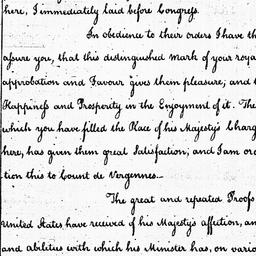 here, I immediately laid before Congress.
In obedience to their orders I have th
assure you, that this distinguished mark of your roya
approbation and Favour gives them pleasure; and
Happiness and Prosperity in the Enjoyment of it. The
which you have filled the Place of his Majesty's Charg
here, has given them great Satisfaction; and I am or
tion this to Count de Vergennes...
The great and repeated Proofs
United States have received of his Majesty's affection, an
and abilities with which his Minister has, on vario